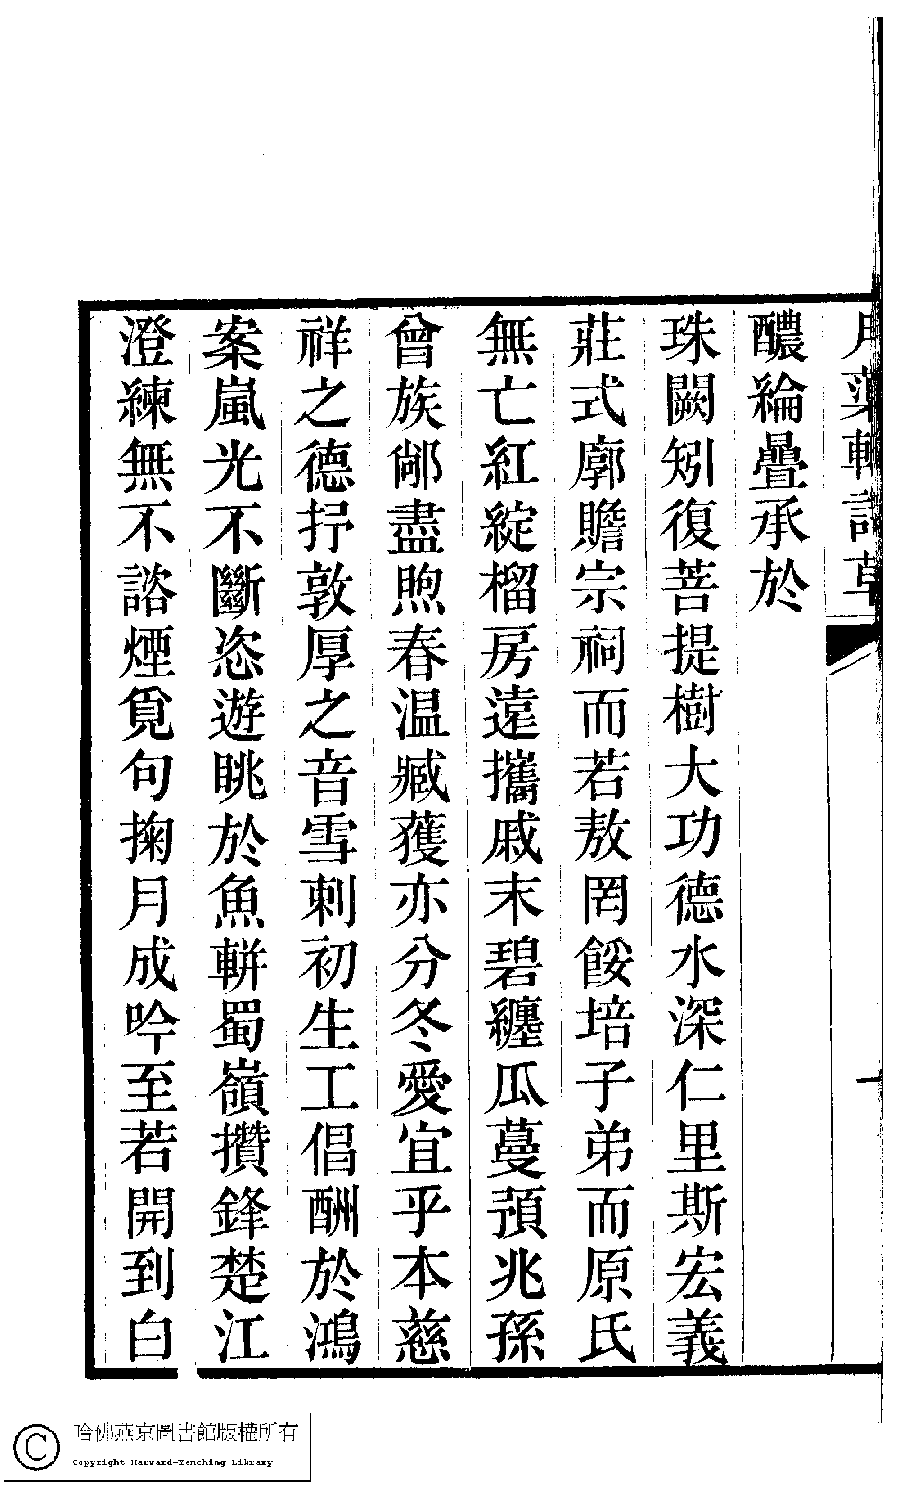 月蕖軒詩草
一
醲綸疊承於
珠闕矧復菩提樹大功德水深仁里斯宏義
莊式廓贍宗祠而若敖罔餒培子弟而原氏
無亡紅綻榴房遠攜戚末碧纏瓜蔓預兆孫
曾族鄃盡煦春温臧獲亦分冬愛宜乎本慈
祥之德抒敦厚之音雪刺初生工倡酬於鴻
案嵐光不斷恣遊眺於魚軿蜀嶺攢鋒楚江
澄練無不諮煙覓句掬月成吟至若開到白
哈佛燕京圖書館版權所有
Copyright Harvard-Yenching Library